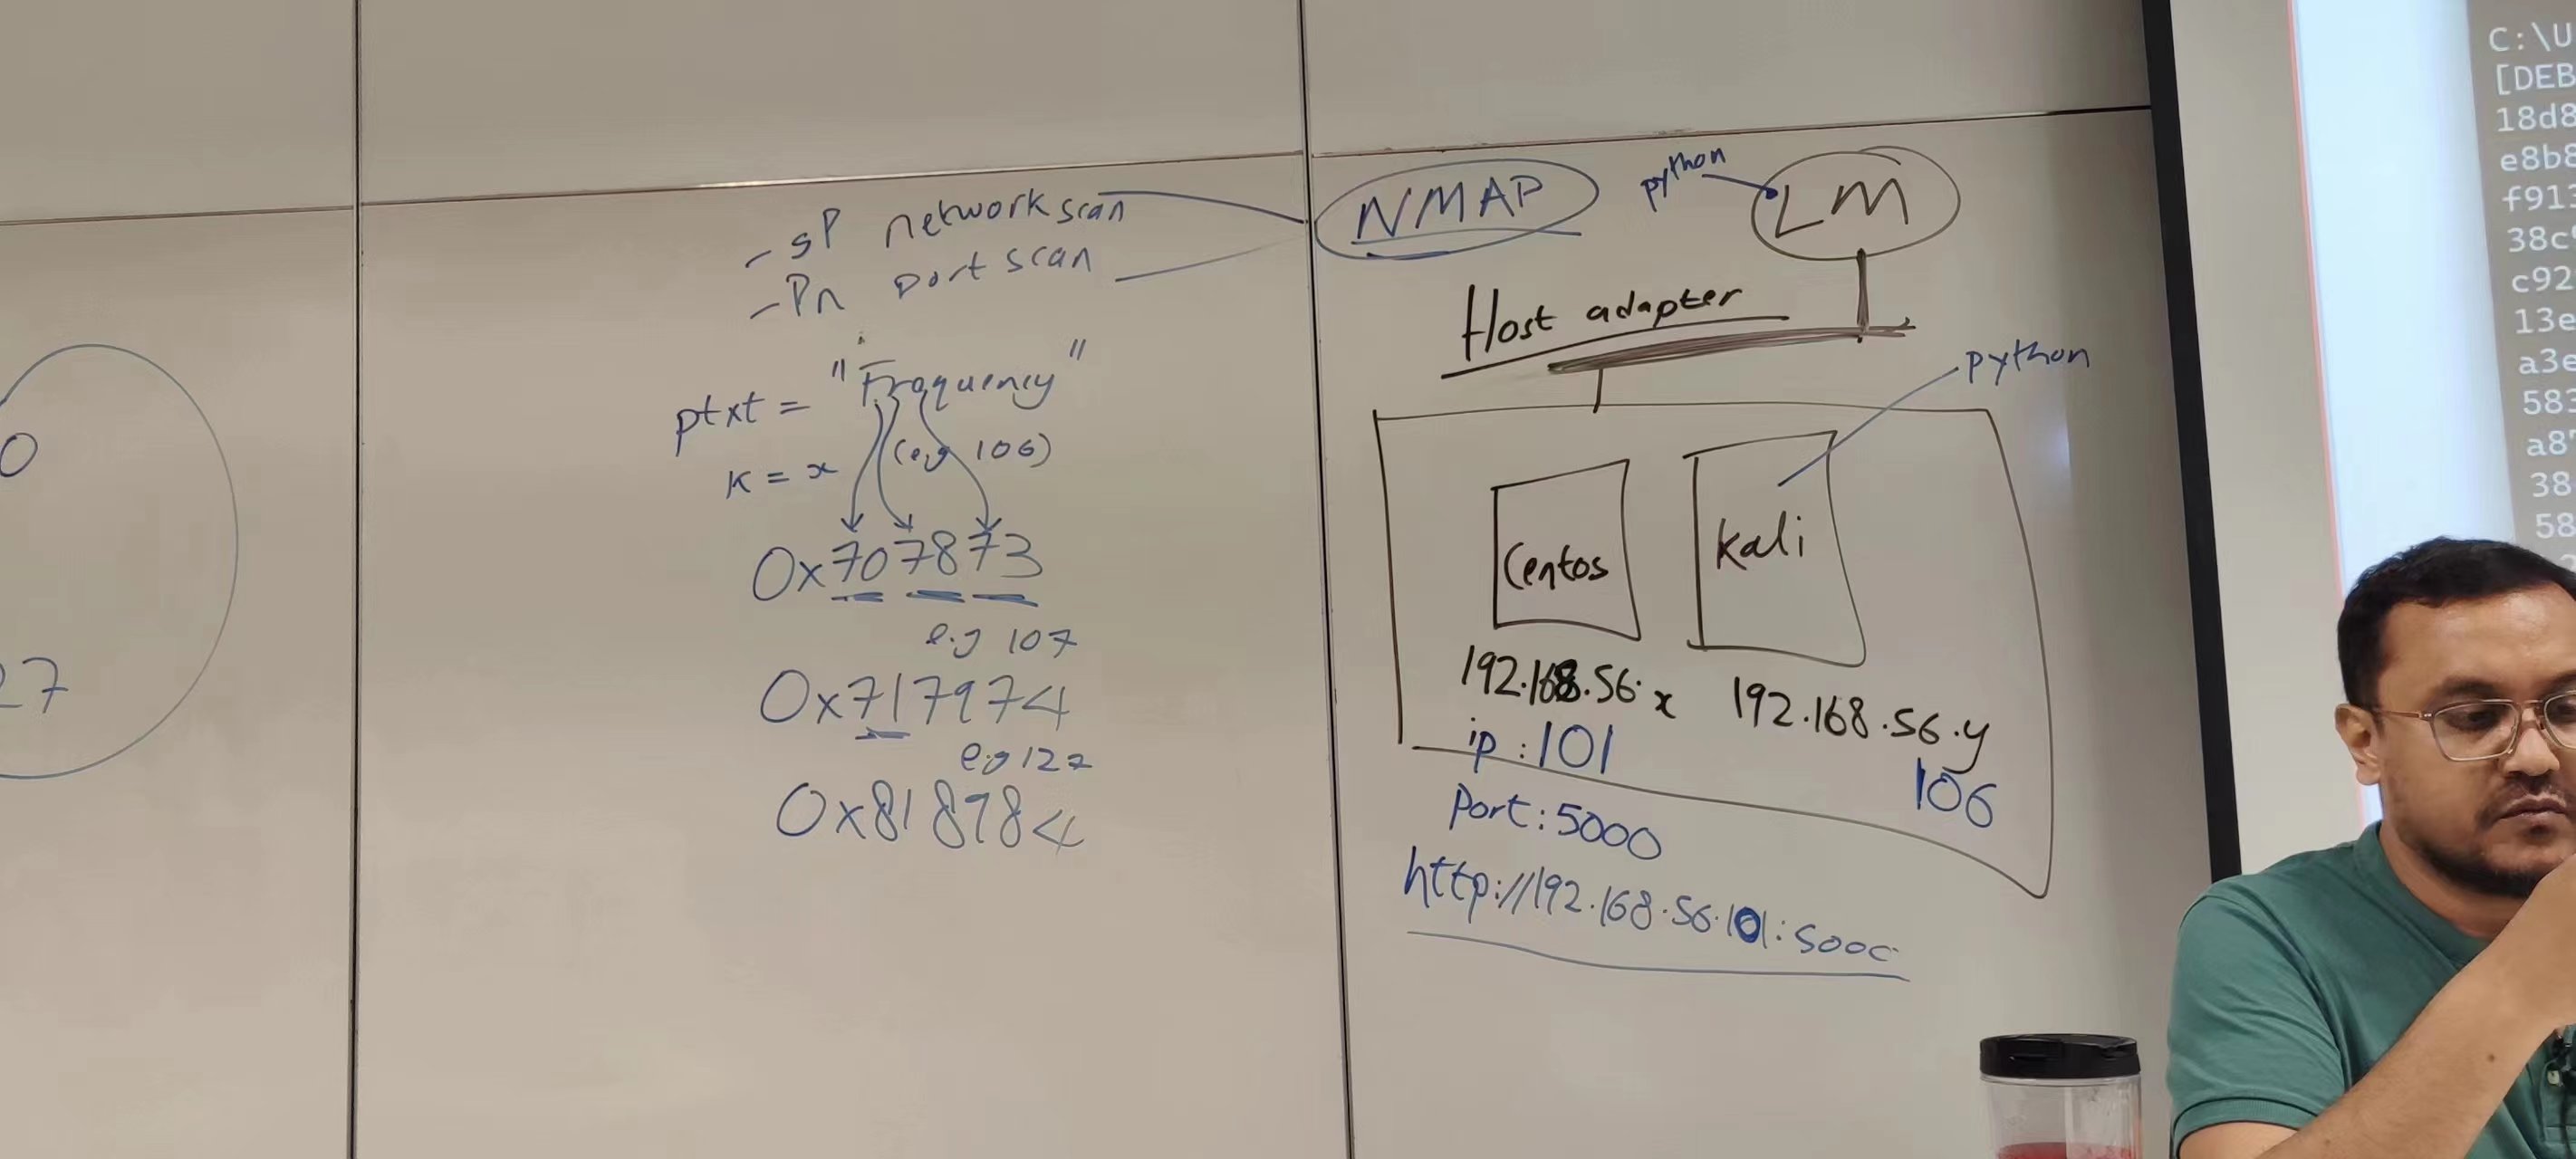 0
27
- sP network scan
- Pn port scan
ptxt = "Frequency"
K = x (e.g 106)
0x707873
e.g 107
0x717974
e.g 122
0x818984
NMAP
python
LM
Host adapter
python
Centos
Kali
192.168.56.x
192.168.56.y
ip : 101
106
Port : 5000
http://192.168.56.101:5000
C:\U
[DEB
18d8
e8b8
f913
38c9
c92
13e
a3e
583
a87
38
58